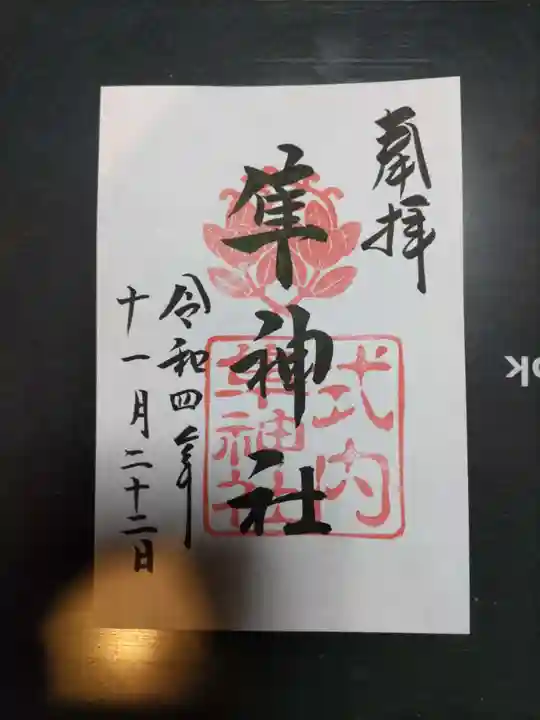 奉拝
隼神社
式内
隼神社
令和四年
十一月二十二日
ok